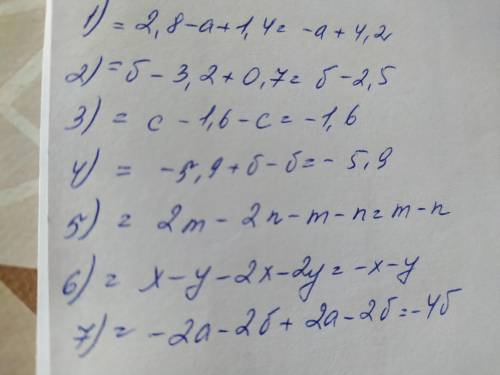 1) = 2,8-a+1,4= -a+4,2
2) = б-3,2+0,7= б-2,5
3) = c-1,6-c= -1,6
4) = -5,9+б-б= -5,9
5) = 2m-2n-m-n= m-n
6) = x-y-2x-2y= -x-y
7) = -2a-2б+2a-2б= -4б